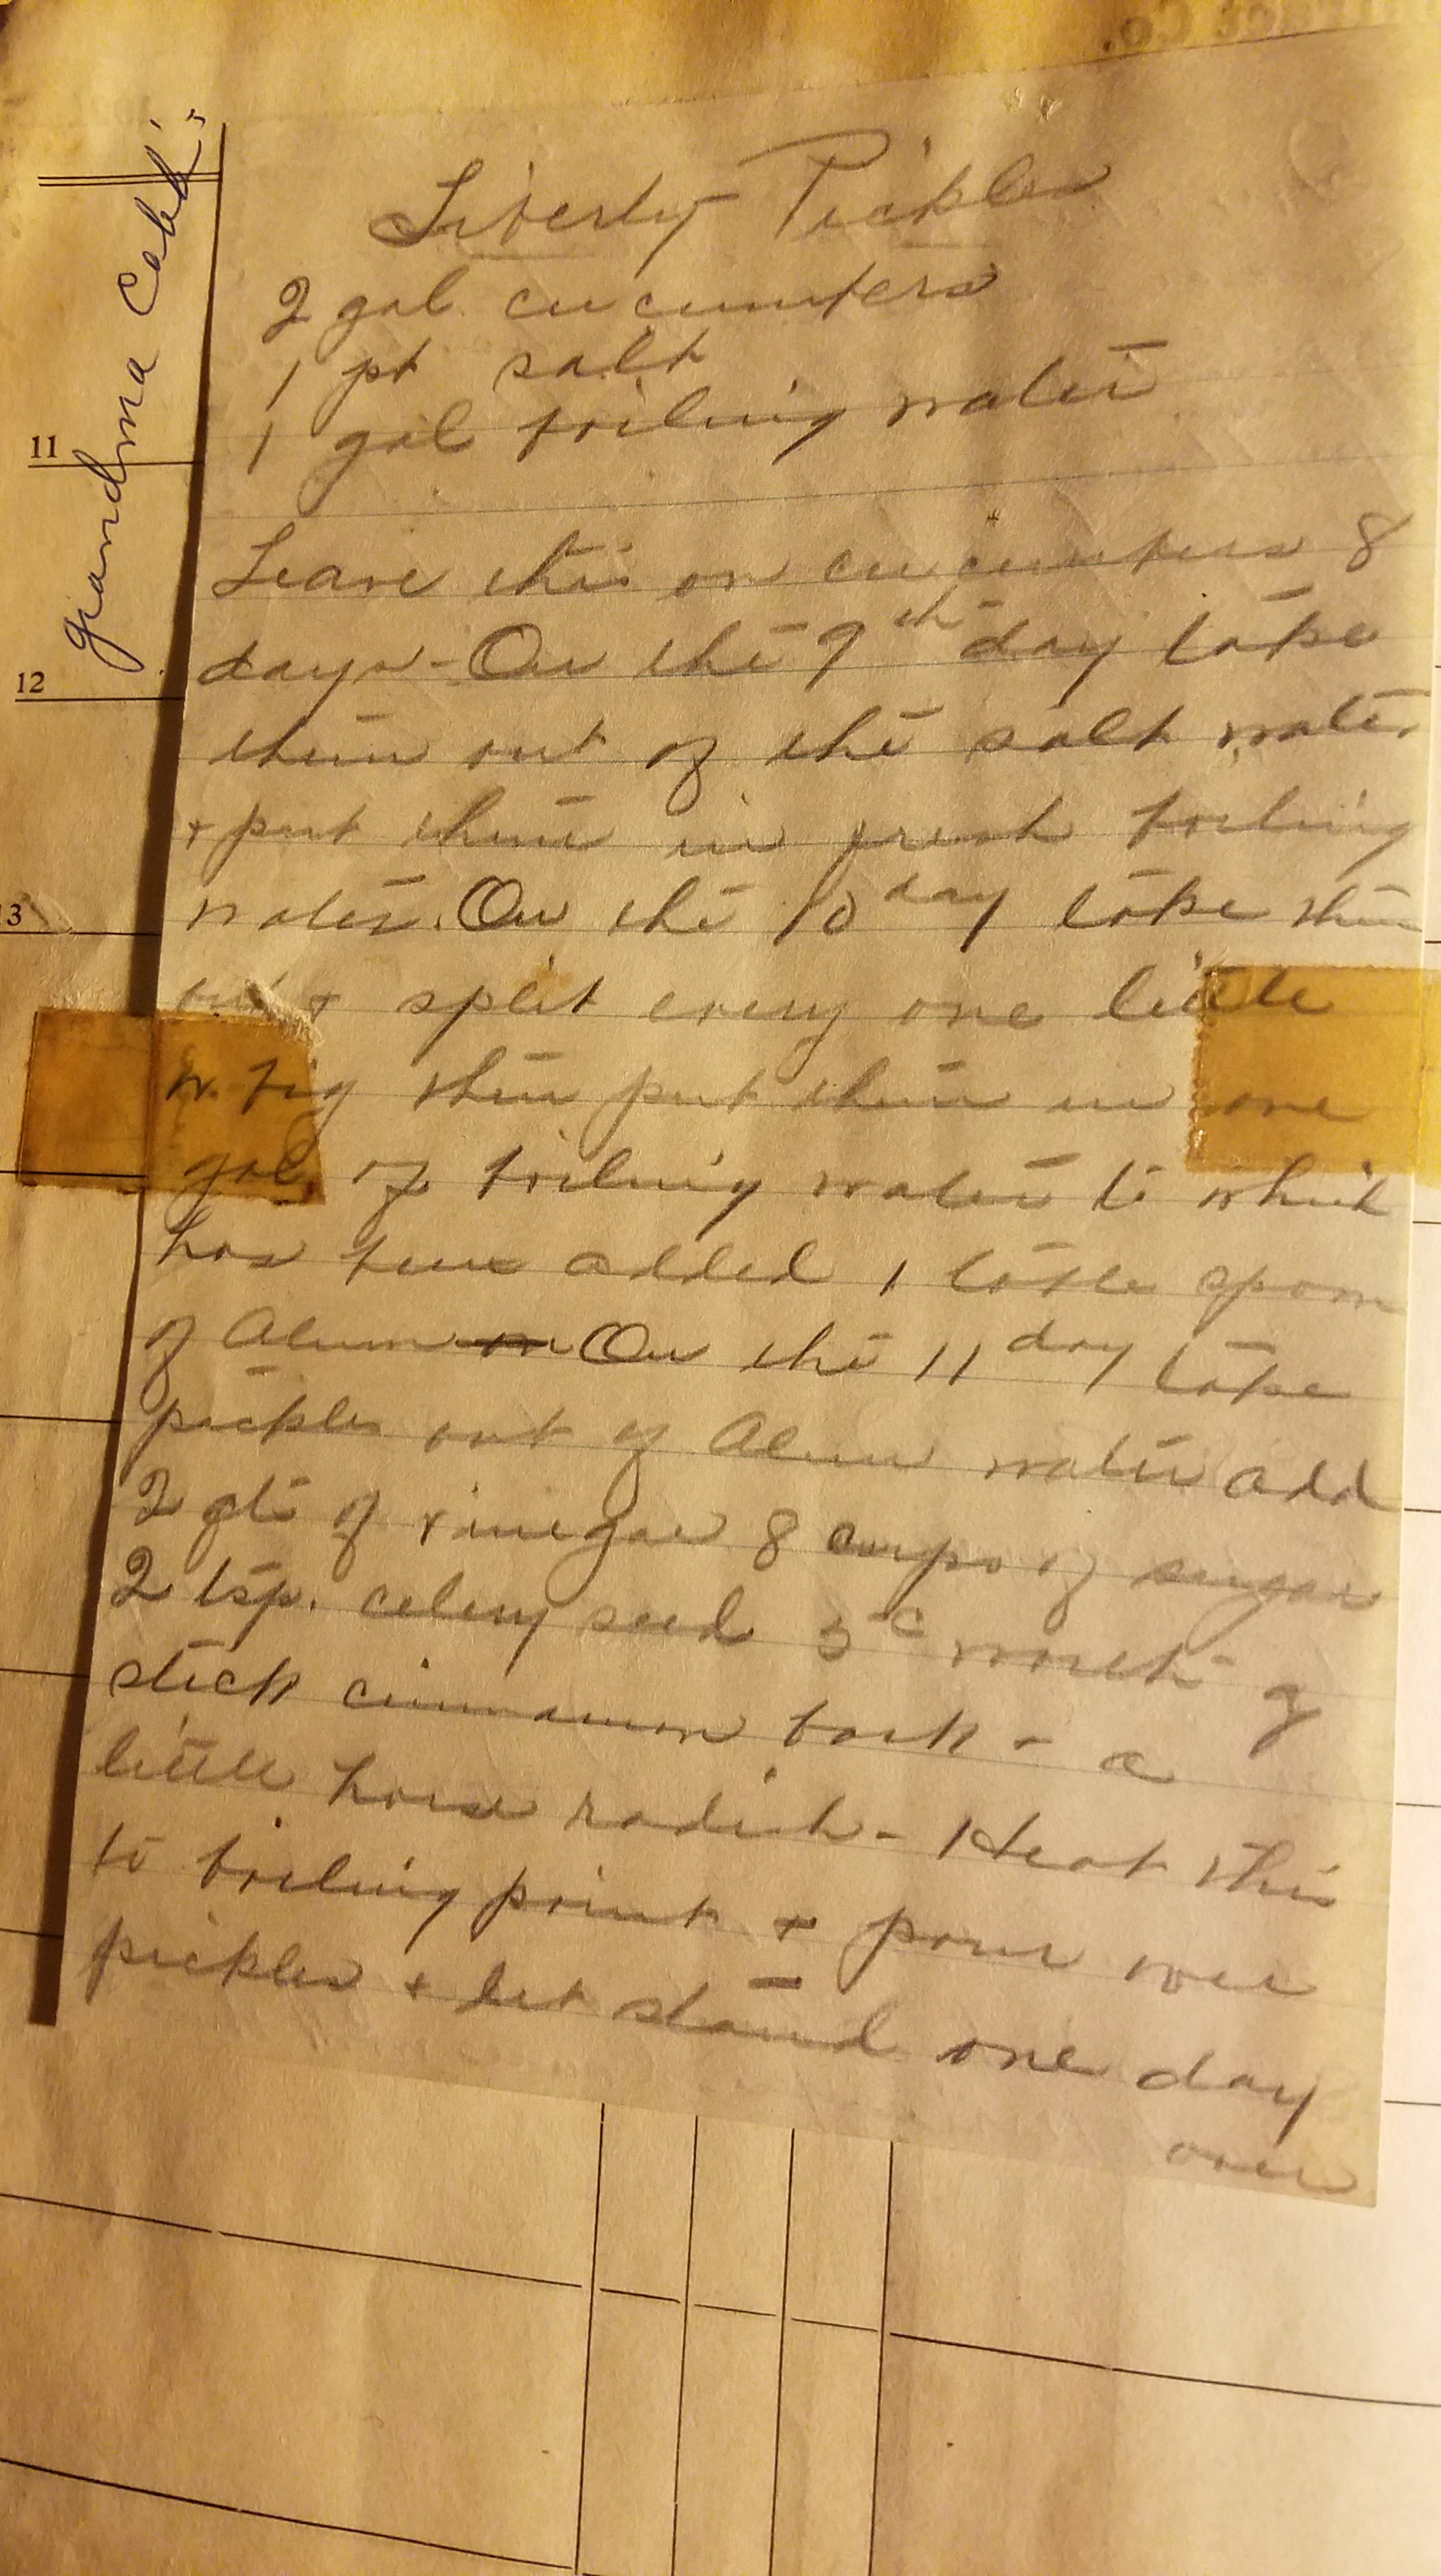 Grandma Cobb's
Liberty Pickles
2 gal. cucumbers
1 pt salt
1 gal boiling water
11
Leave this on cucumbers 8
days - On the 9th day take
12
them out of the salt water
+ put them in fresh boiling
water. On the 10 day take them
13
out + split every one little
or big then put them in one
gal. of boiling water to which
has been added 1 table spoon
of Alum On the 11 day take
pickles out of Alum water add
2 qts of vinegar 8 cups of sugar
2 tsp. celery seed 5c worth of
stick cinnamon bark - a
little horse radish - Heat this
to boiling point + pour over
pickles + let stand one day
over